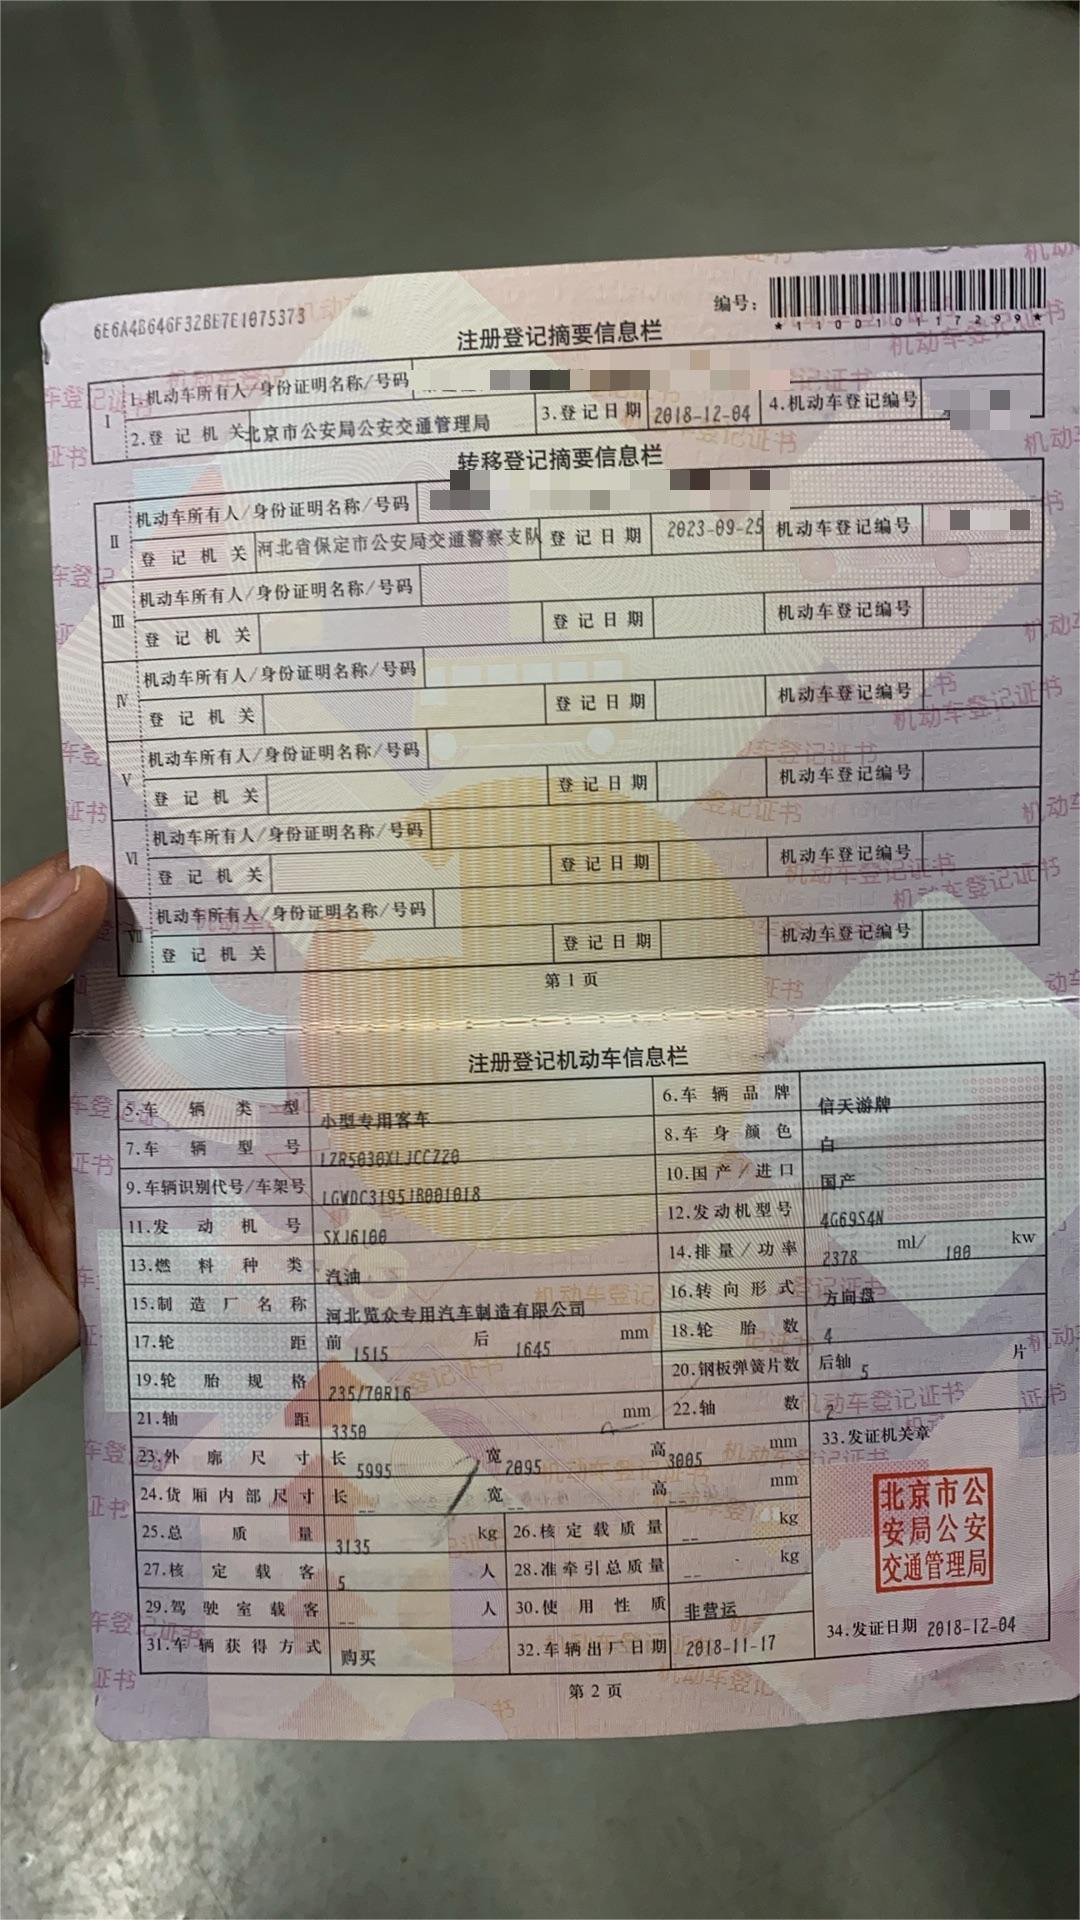 6E6A4B646F32BE7E1075373
编号：
*110010117299*
注册登记摘要信息栏
I
1.机动车所有人/身份证明名称/号码
2.登记机关 北京市公安局公安交通管理局 3.登记日期 2018-12-04 4.机动车登记编号
转移登记摘要信息栏
II
机动车所有人/身份证明名称/号码
登记机关 河北省保定市公安局交通警察支队 登记日期 2023-09-25 机动车登记编号
III
机动车所有人/身份证明名称/号码
登记机关 登记日期 机动车登记编号
IV
机动车所有人/身份证明名称/号码
登记机关 登记日期 机动车登记编号
V
机动车所有人/身份证明名称/号码
登记机关 登记日期 机动车登记编号
VI
机动车所有人/身份证明名称/号码
登记机关 登记日期 机动车登记编号
VII
机动车所有人/身份证明名称/号码
登记机关 登记日期 机动车登记编号
第1页
注册登记机动车信息栏
5.车辆类型 小型专用客车 6.车辆品牌 信天游牌
7.车辆型号 LZR5030XLJCCZ20 8.车身颜色 白
9.车辆识别代号/车架号 LGWDC3195JB001018 10.国产/进口 国产
11.发动机号 SXJ6100 12.发动机型号 4G69S4N
13.燃料种类 汽油 14.排量/功率 2378 ml/ 100 kw
15.制造厂名称 河北览众专用汽车制造有限公司 16.转向形式 方向盘
17.轮距 前 1515 后 1645 mm 18.轮胎数 4
19.轮胎规格 235/70R16 20.钢板弹簧片数 后轴 5 片
21.轴距 3350 mm 22.轴数 2
23.外廓尺寸 长 5995 宽 2095 高 3005 mm 33.发证机关章
24.货厢内部尺寸 长 -- 宽 -- 高 -- mm
25.总质量 3135 kg 26.核定载质量 -- kg
27.核定载客 5 人 28.准牵引总质量 -- kg
29.驾驶室载客 -- 人 30.使用性质 非营运
31.车辆获得方式 购买 32.车辆出厂日期 2018-11-17 34.发证日期 2018-12-04
北京市公
安局公安
交通管理局
第2页